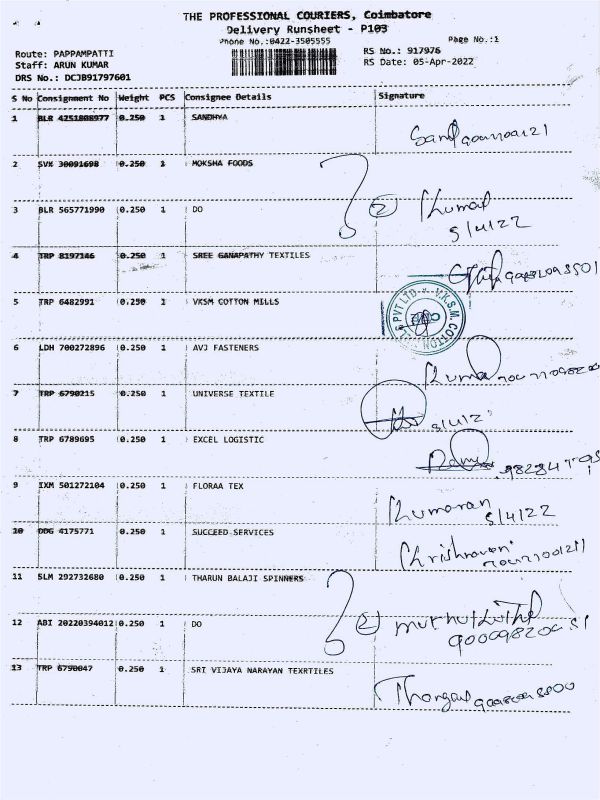 THE PROFESSIONAL COURIERS, Coimbatore
Delivery Runsheet - P103
Phone No.:0422-3505555
Page No.:1
Route: PAPPAMPATTI
Staff: ARUN KUMAR
DRS No.: DCJB91797601
RS No.: 917976
RS Date: 05-Apr-2022
S No Consignment No Weight PCS Consignee Details Signature
1 BLR 4251808977 0.250 1 SANDHYA
2 SVK 30091698 0.250 1 MOKSHA FOODS
3 BLR 565771990 0.250 1 DO
② Kumar
5/4/22
4 TRP 8197146 0.250 1 SREE GANAPATHY TEXTILES
5 TRP 6482991 0.250 1 VKSM COTTON MILLS
PVT LTD. * V.K.S.M. COTTON
6 LDH 700272896 0.250 1 AVJ FASTENERS
Kumar
7 TRP 6790215 0.250 1 UNIVERSE TEXTILE
8 TRP 6789695 0.250 1 EXCEL LOGISTIC
9 IXM 501272104 0.250 1 FLORAA TEX
Kumaran
5/4/22
10 DDG 4175771 0.250 1 SUCCEED SERVICES
11 SLM 292732680 0.250 1 THARUN BALAJI SPINNERS
12 ABI 20220394012 0.250 1 DO
②
13 TRP 6790047 0.250 1 SRI VIJAYA NARAYAN TEXRTILES